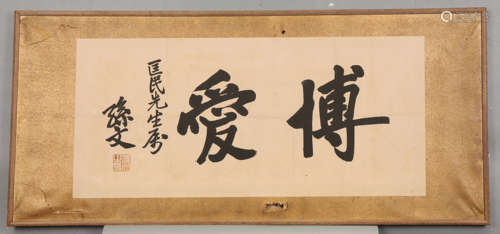 博愛
匡民先生屬
孫文